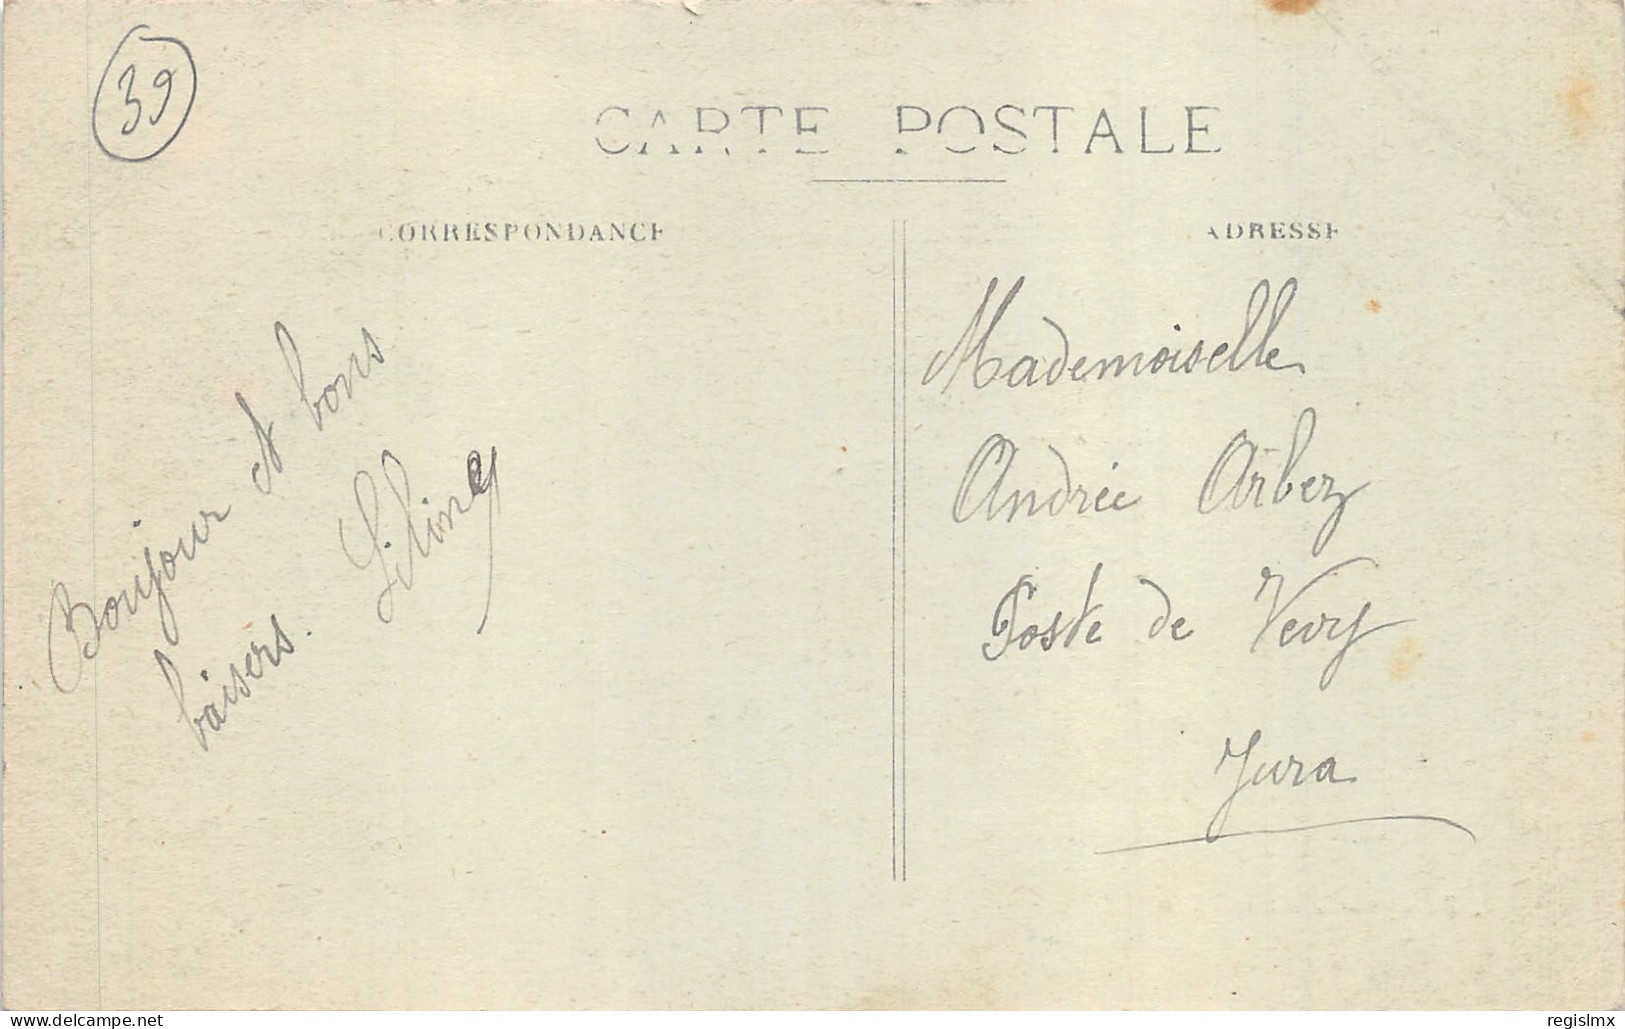 39
CARTE POSTALE
CORRESPONDANCE
ADRESSE
Bonjour et bons
baisers.
Mademoiselle
Andrée Arbez
Poste de Vevy
Jura
www.delcampe.net
regislmx